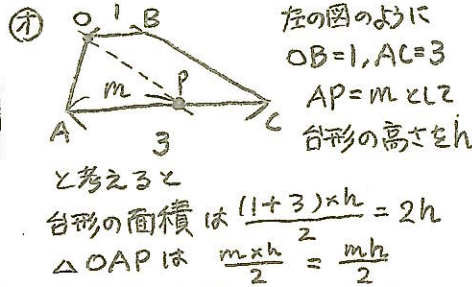 オ
O 1 B
左の図のように
OB=1, AC=3
m P
AP=mとして
A 3 C
台形の高さをh
と考えると
台形の面積は (1+3)×h/2 = 2h
△OAPは m×h/2 = mh/2